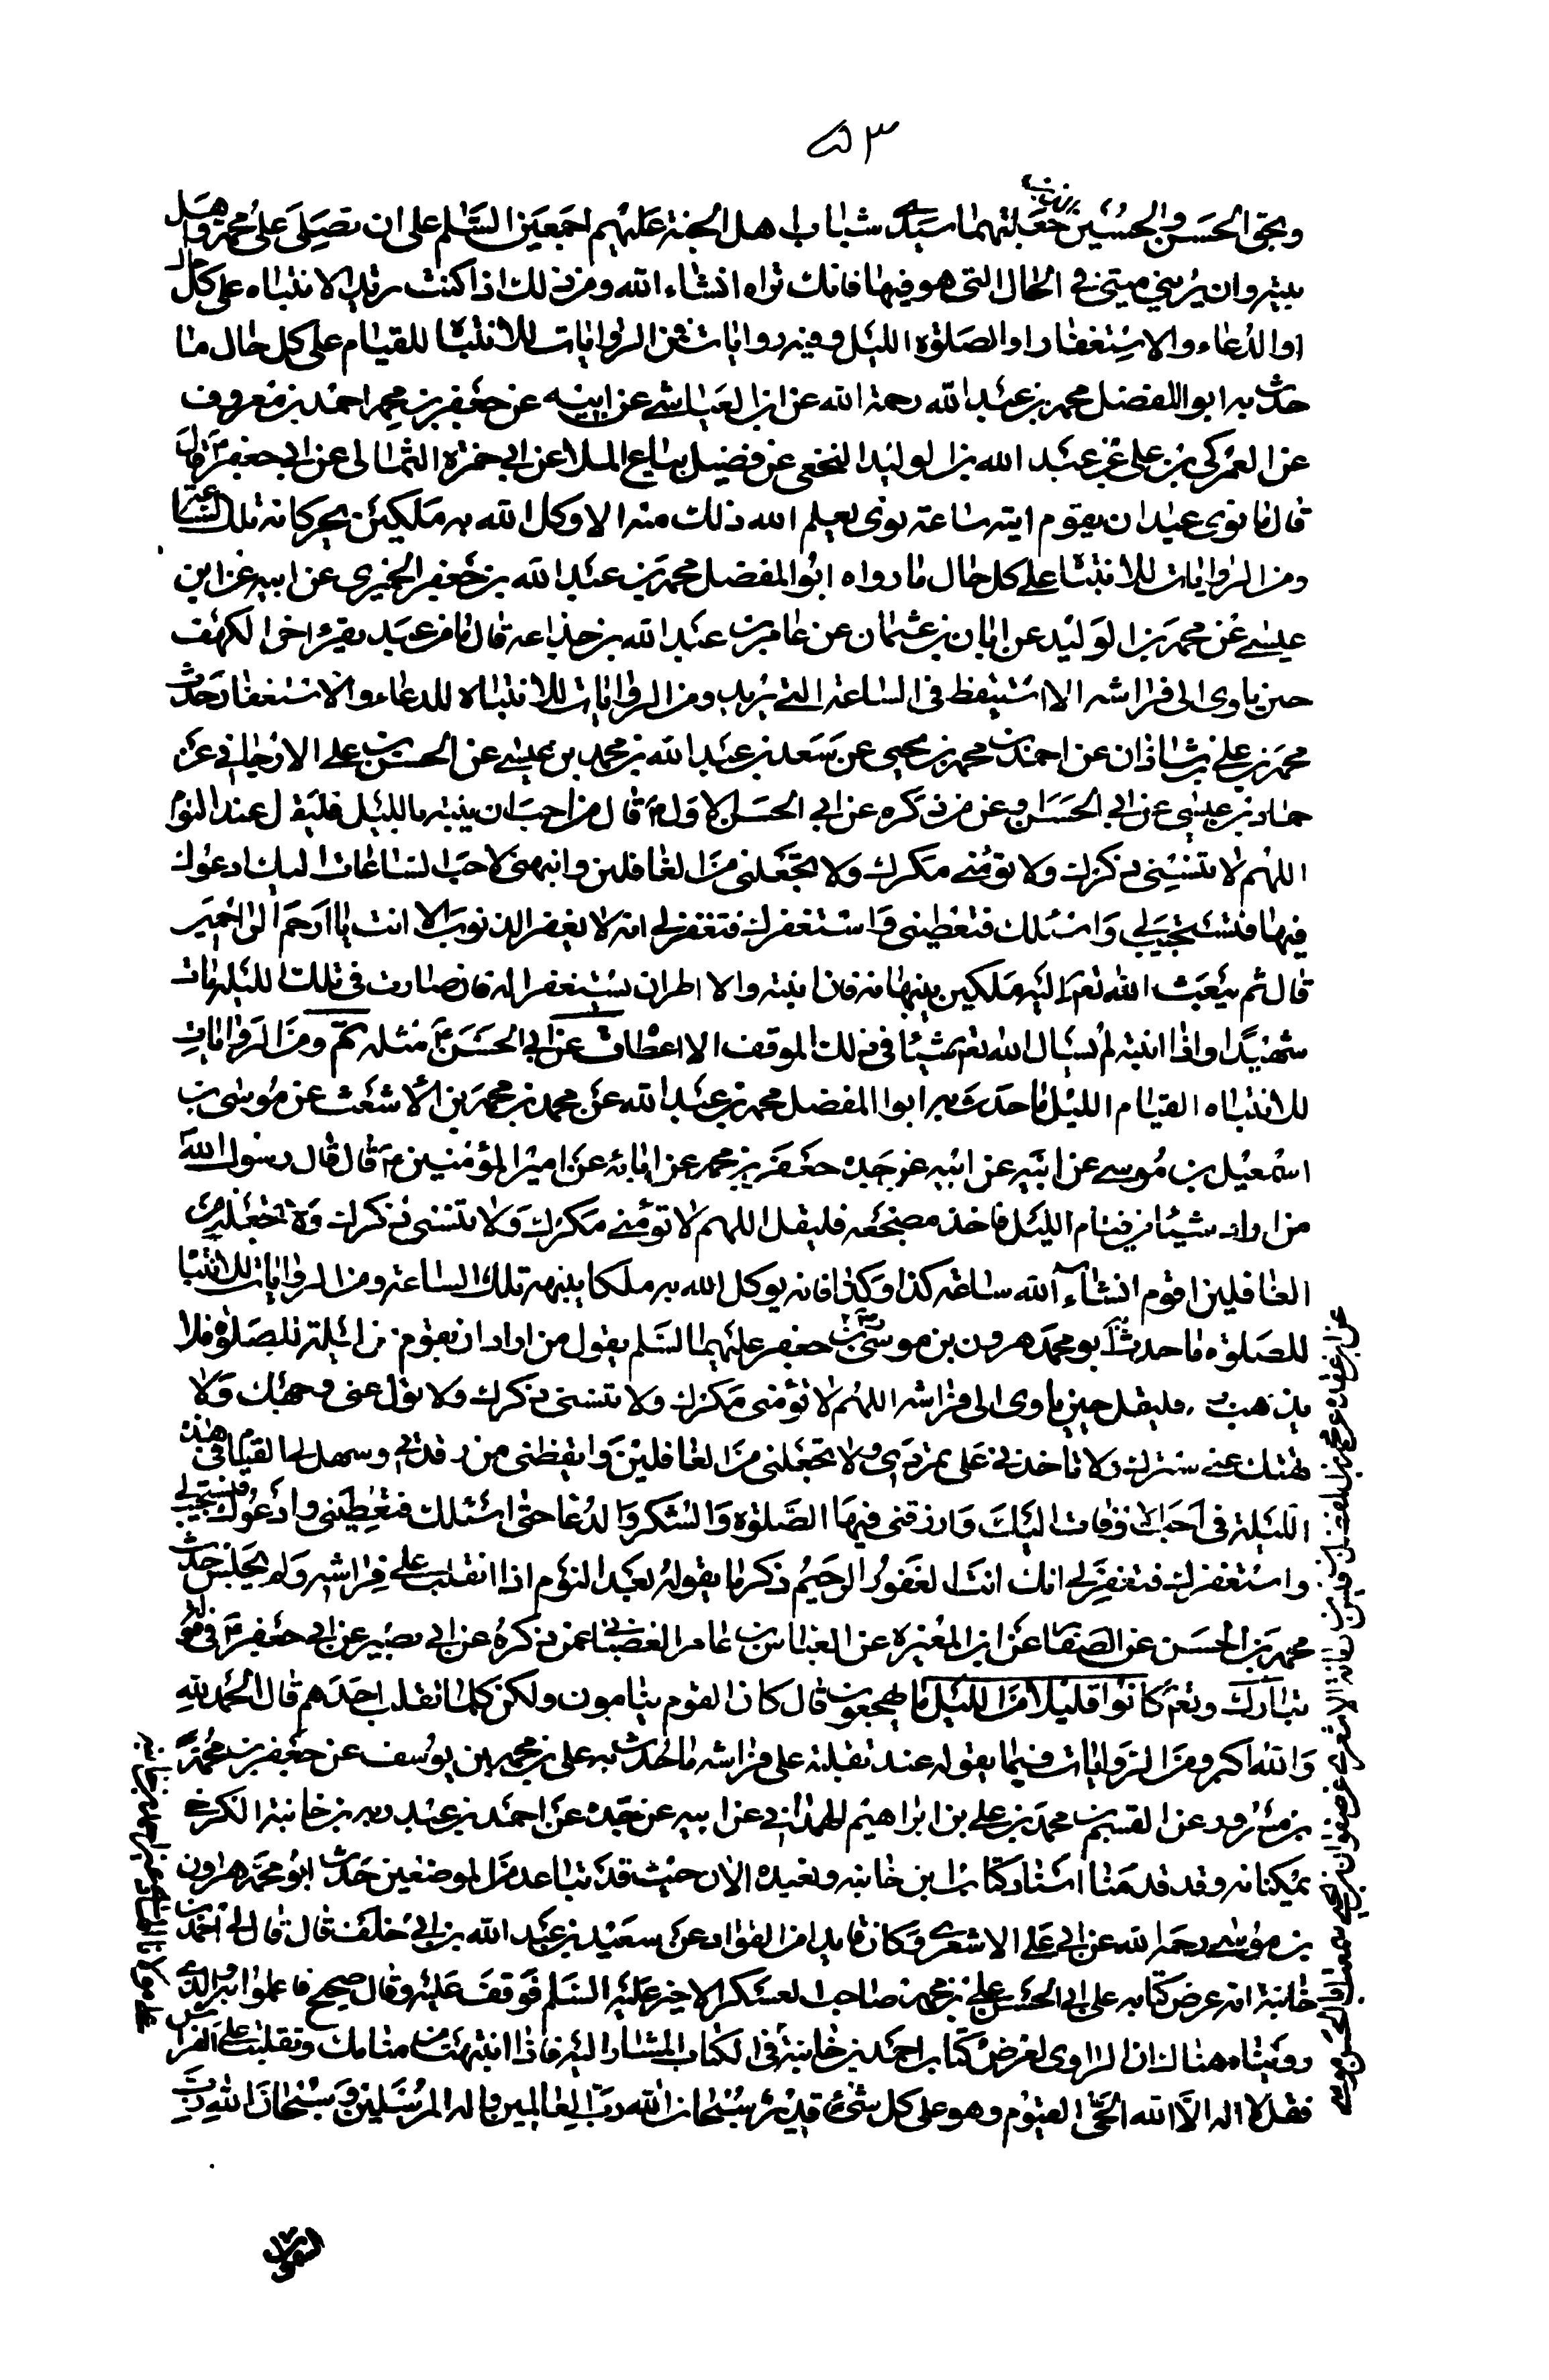 ٥٣
وبحق الحسن والحسين جعلتهما سيدى شباب اهل الجنة عليهم اجمعين السلم على ان تصلى على محمد واهل
بيته وان تريني ميتي في الحال التي هو فيها فانك تراه انشاء الله ومن ذلك اذا كنت تريد الانتباه على كل حال
او الدعاء والاستغفار او الصلوة الليل وفيه روايات فمن الروايات للانتباه للقيام على كل حال ما
حدث به ابو المفضل محمد بن عبد الله رحمة الله عن ابن العياشي عن ابيه عن جعفر بن محمد احمد بن معروف
عن العمركي بن علي عن عبد الله بن الوليد النخعي عن فضيل بياع الملا عن ابي حمزة الثمالى عن ابي جعفر ع قال
قال ما نوى عبد ان يقوم اية ساعة نوى يعلم الله ذلك منه الا وكل الله به ملكين يحركانه تلك الساعة
ومن الروايات للانتباه على كل حال ما رواه ابو المفضل محمد بن عبد الله بن جعفر الحميرى عن ابيه عن ابن
عيسى عن محمد بن الوليد عن ابان بن عثمان عن عامر بن عبد الله بن جذاعة قال ما من عبد يقرء اخر الكهف
حين ياوى الى فراشه الا استيقظ في الساعة التي يريد ومن الروايات للانتباه للدعاء والاستغفار حدث
محمد بن علي بن شاذان عن احمد بن محمد بن يحيى عن سعد بن عبد الله بن محمد بن عيسى عن الحسن بن علي الارجاني عن
حماد بن عيسى عن ابي الحسن وعن من ذكره عن ابي الحسن الاول ع قال من احب ان ينتبه بالليل فليقل عند النوم
اللهم لا تنسني ذكرك ولا تؤمني مكرك ولا تجعلني من الغافلين وانبهني لاحب الساعات اليك ادعوك
فيها فتستجيب لي واسئلك فتعطيني واستغفرك فتغفر لي انه لا يغفر الذنوب الا انت يا ارحم الراحمين
قال ثم يبعث الله تعالى اليه ملكين ينبهانه فان انتبه والا امران يستغفرا له فان مات في تلك الليلة مات
شهيدا واذا انتبه لم يسال الله تعالى شيئا في ذلك الموقف الا اعطاه عن ابي الحسن ع مثله ومن الروايات
للانتباه القيام الليل ما حدث به ابو المفضل محمد بن عبد الله عن محمد بن محمد بن الاشعث عن موسى بن
اسمعيل بن موسى عن ابيه عن ابيه عن جده جعفر بن محمد عن ابائه عن امير المؤمنين ع قال قال رسول الله
من اراد شيئا من قيام الليل فاخذ مضجعه فليقل اللهم لا تؤمني مكرك ولا تنسني ذكرك ولا تجعلني من
الغافلين اقوم انشاء الله ساعة كذا وكذا فانه يوكل الله به ملكا ينبهه تلك الساعة ومن الروايات للانتباه
للصلوة ما حدث ابو محمد هرون بن موسى بن جعفر عليهما السلم يقول من اراد ان يقوم من ليلته للصلوة فلا
يذهب فليقل حين ياوى الى فراشه اللهم لا تؤمني مكرك ولا تنسني ذكرك ولا تول عني وجهك ولا
تهتك عني سترك ولا تاخذني على تمردي ولا تجعلني من الغافلين وايقظني من رقدتي وسهل لي القيام في هذه
الليلة في احب الاوقات اليك وارزقني فيها الصلوة والشكر والدعا حتى اسئلك فتعطيني وادعوك فتستجيب لي
واستغفرك فتغفر لي انك انت الغفور الرحيم ذكر ما يقوله بعد النوم اذا انقلب على فراشه ولم يجلس حدث
محمد بن الحسن عن الصفار عن ابن المغيرة عن العباس بن عامر القصباني عمن ذكره عن ابي بصير عن ابي جعفر ع في قوله
تبارك وتعالى كانوا قليلا من الليل ما يهجعون قال كان القوم ينامون ولكن كلما انقلب احدهم قال الحمد لله
والله اكبر ومن الروايات فيما يقوله عند تقلبه على فراشه ما حدث به علي بن محمد بن يوسف عن جعفر بن محمد
بن مسرور عن القسم بن محمد بن علي بن ابراهيم الهمداني عن ابيه عن جده عن احمد بن عبد ربه بن خانبة الكرخي
وقد قدمنا اسناد كتاب ابن خانبه ونعيده الان حيث قد تباعد من الموضعين حدث ابو محمد هارون
بن موسى رحمه الله عن ابي علي الاشعري وكان قايدا من القواد عن سعيد بن عبد الله بن ابي خلف قال قال لي احمد بن
خانبة انه عرض كتابه على ابي الحسن علي بن محمد صاحب العسكر الاخير عليه السلم فوقف عليه وقال صحيح فاعملوا به الذي
رويناه هناك ان الراوى لعرض كتاب احمد بن خانبة في الكتاب المشار اليه فاذا انتبهت من منامك وتقلبت على الفراش
فقل لا اله الا الله الحي القيوم وهو على كل شئ قدير سبحان الله رب العالمين واله المرسلين وسبحان الله رب
السموات